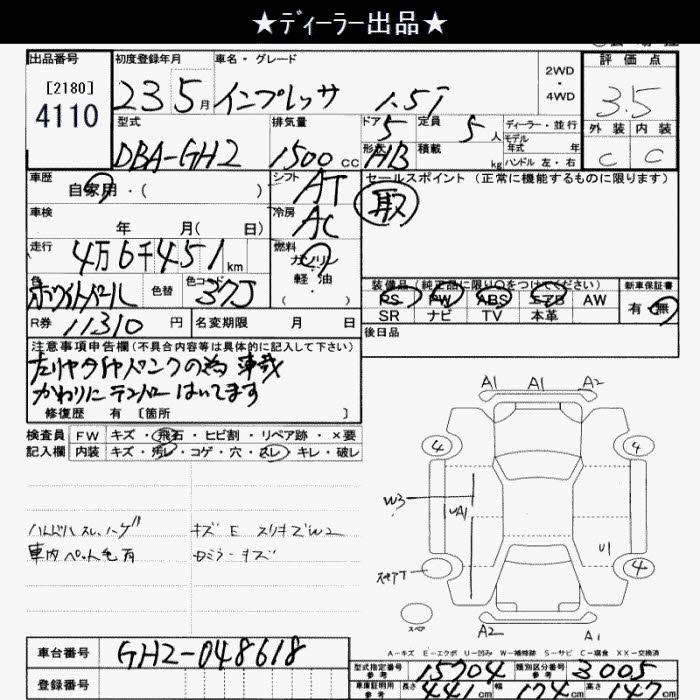 ★ディーラー出品★
出品番号
[2180]
4110
初度登録年月
23 5月
車名・グレード
インプレッサ 1.5i
2WD
・
4WD
評価点
3.5
外装 内装
C C
型式
DBA-GH2
排気量
1500 CC
ドア 5
形状 HB
定員 5人
積載 kg
ディーラー・並行
モデル
年式 年
ハンドル 左・右
車歴
自家用・( )
シフト
AT
セールスポイント (正常に機能するものに限ります)
取
車検
年 月( 日)
冷房
AC
走行
4万6千451km
燃料
ガソリン
軽油
( ・ )
色
ホワイトパール
色替
色コード
37J
装備品 (純正品に限り○をつけてください)
PS PW ABS エアB AW
SR ナビ TV 本革
新車保証書
有・無
R券 11310 円
名変期限 月 日
後日品
注意事項申告欄(不具合内容等は具体的に記入して下さい)
左リヤタイヤパンクの為 車載
かわりにテンパーはいてます
修復歴 有 〔箇所 〕
検査員
記入欄
FW キズ・飛石・ヒビ割・リペア跡・×要
内装 キズ・汚レ・コゲ・穴・スレ・キレ・破レ
ハンドルスレ、ハゲ
車内ペット毛有
キズ E スリキズW2
Rミラーキズ
A1 A1 A2
4 4
W3
UA1
U1
スペアT
4
スペア
A2 A1
A-キズ E-エクボ U-凹み W-補修跡 S-サビ C-腐食 XX-交換済
車台番号
GH2-048618
登録番号
型式指定番号
参考
15704
類別区分番号
参考
3005
車庫証明用
参考
長さ 441cm 幅 174cm 高さ 147cm